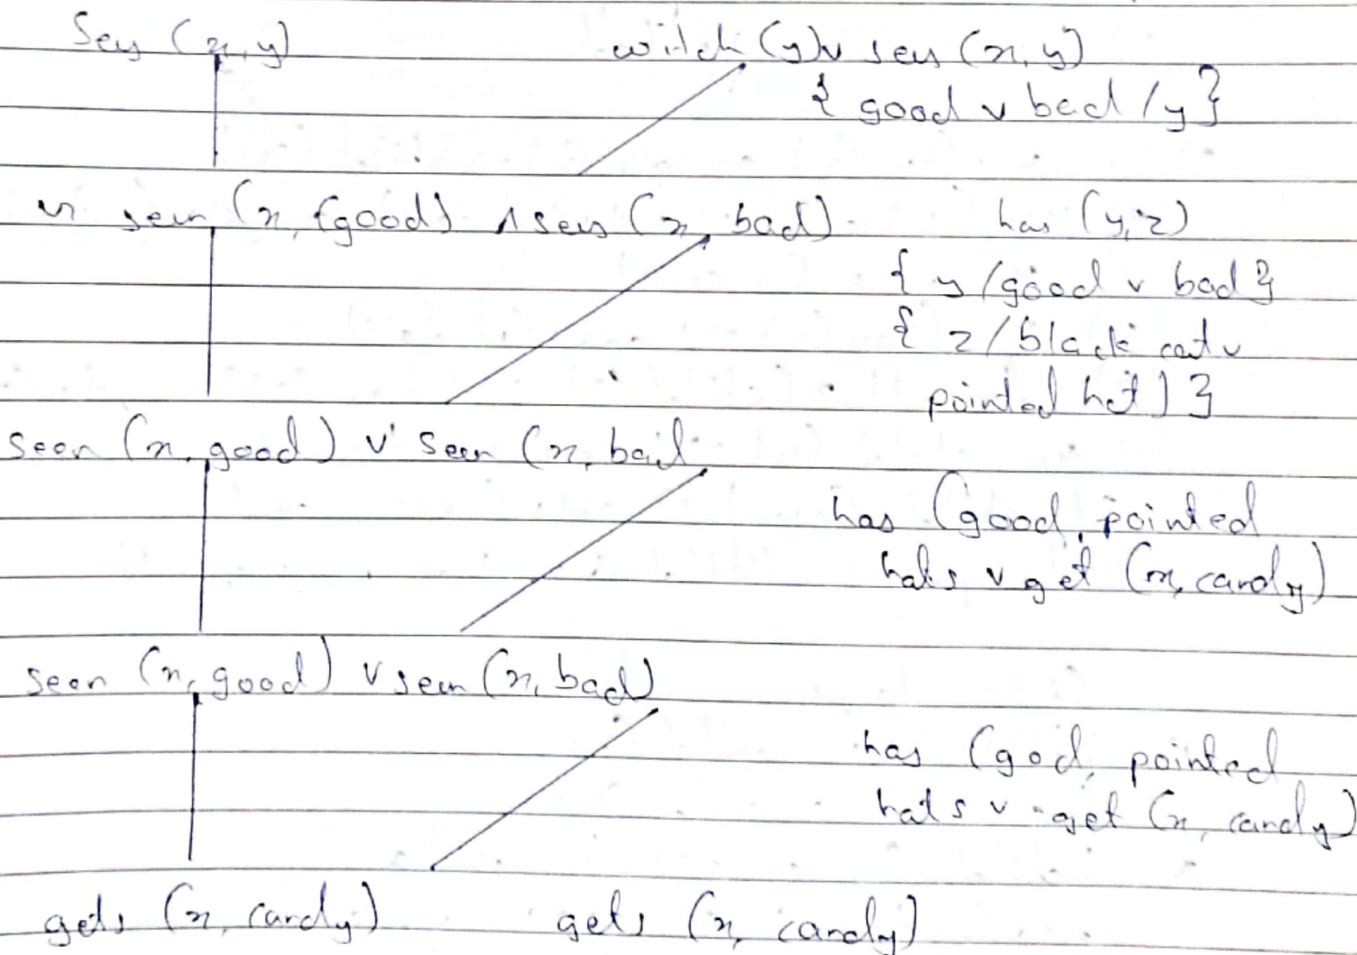 Sees (x, y) witch (y) v sees (x, y)
{ good v bad / y }
seen (x, {good) ∧ sees (x, bad) has (y, z)
{ y / good v bad }
{ z / black cat v
pointed hat ) }
seen (x, good) v seen (x, bad
has (good, pointed
hats v get (x, candy)
seen (x, good) v seen (x, bad)
has (god, pointed
hats v get (x, candy)
gets (x, candy) gets (x, candy)